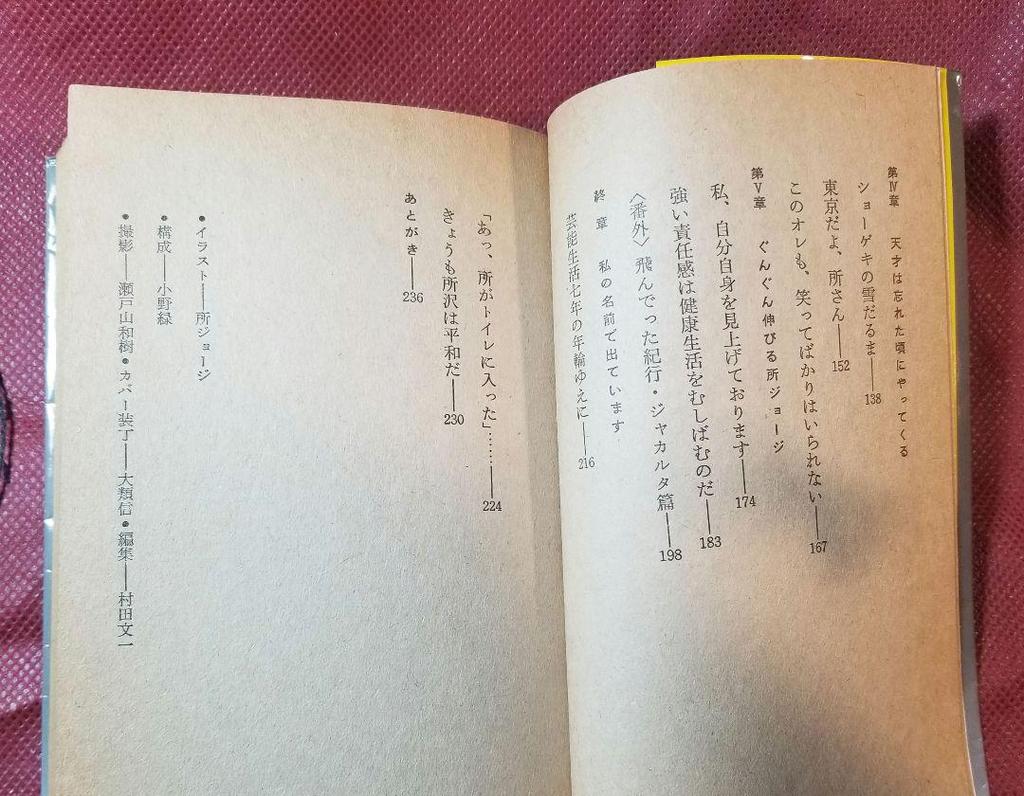 第Ⅳ章 天才は忘れた頃にやってくる
ショーゲキの雪だるま——138
東京だよ、所さん——152
このオレも、笑ってばかりはいられない——167
第Ⅴ章 ぐんぐん伸びる所ジョージ
私、自分自身を見上げております——174
強い責任感は健康生活をむしばむのだ——183
〈番外〉飛んでった紀行・ジャカルタ篇——198
終章 私の名前で出ています
芸能生活七年の年輪ゆえに——216
「あっ、所がトイレに入った」……——224
きょうも所沢は平和だ——230
あとがき——236
●イラスト——所ジョージ
●構成——小野緑
●撮影——瀬戸山和樹●カバー装丁——大類信●編集——村田文一